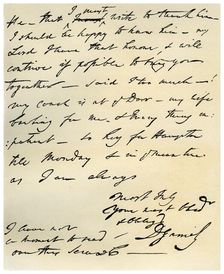 He - that I must write to thank him
I should be happy to know him - my
Lord I have that honor, & will
contrive if possible to bring you
together - said I too much - !
my coach is at ye Door - my wife
bawling for me, & Fury they in:
:patient - to Key for Hampton
till Monday & in ye mean time
as I am always
most truly
your most obedt
& obliged
I have not
a moment to read
over this Scrawl